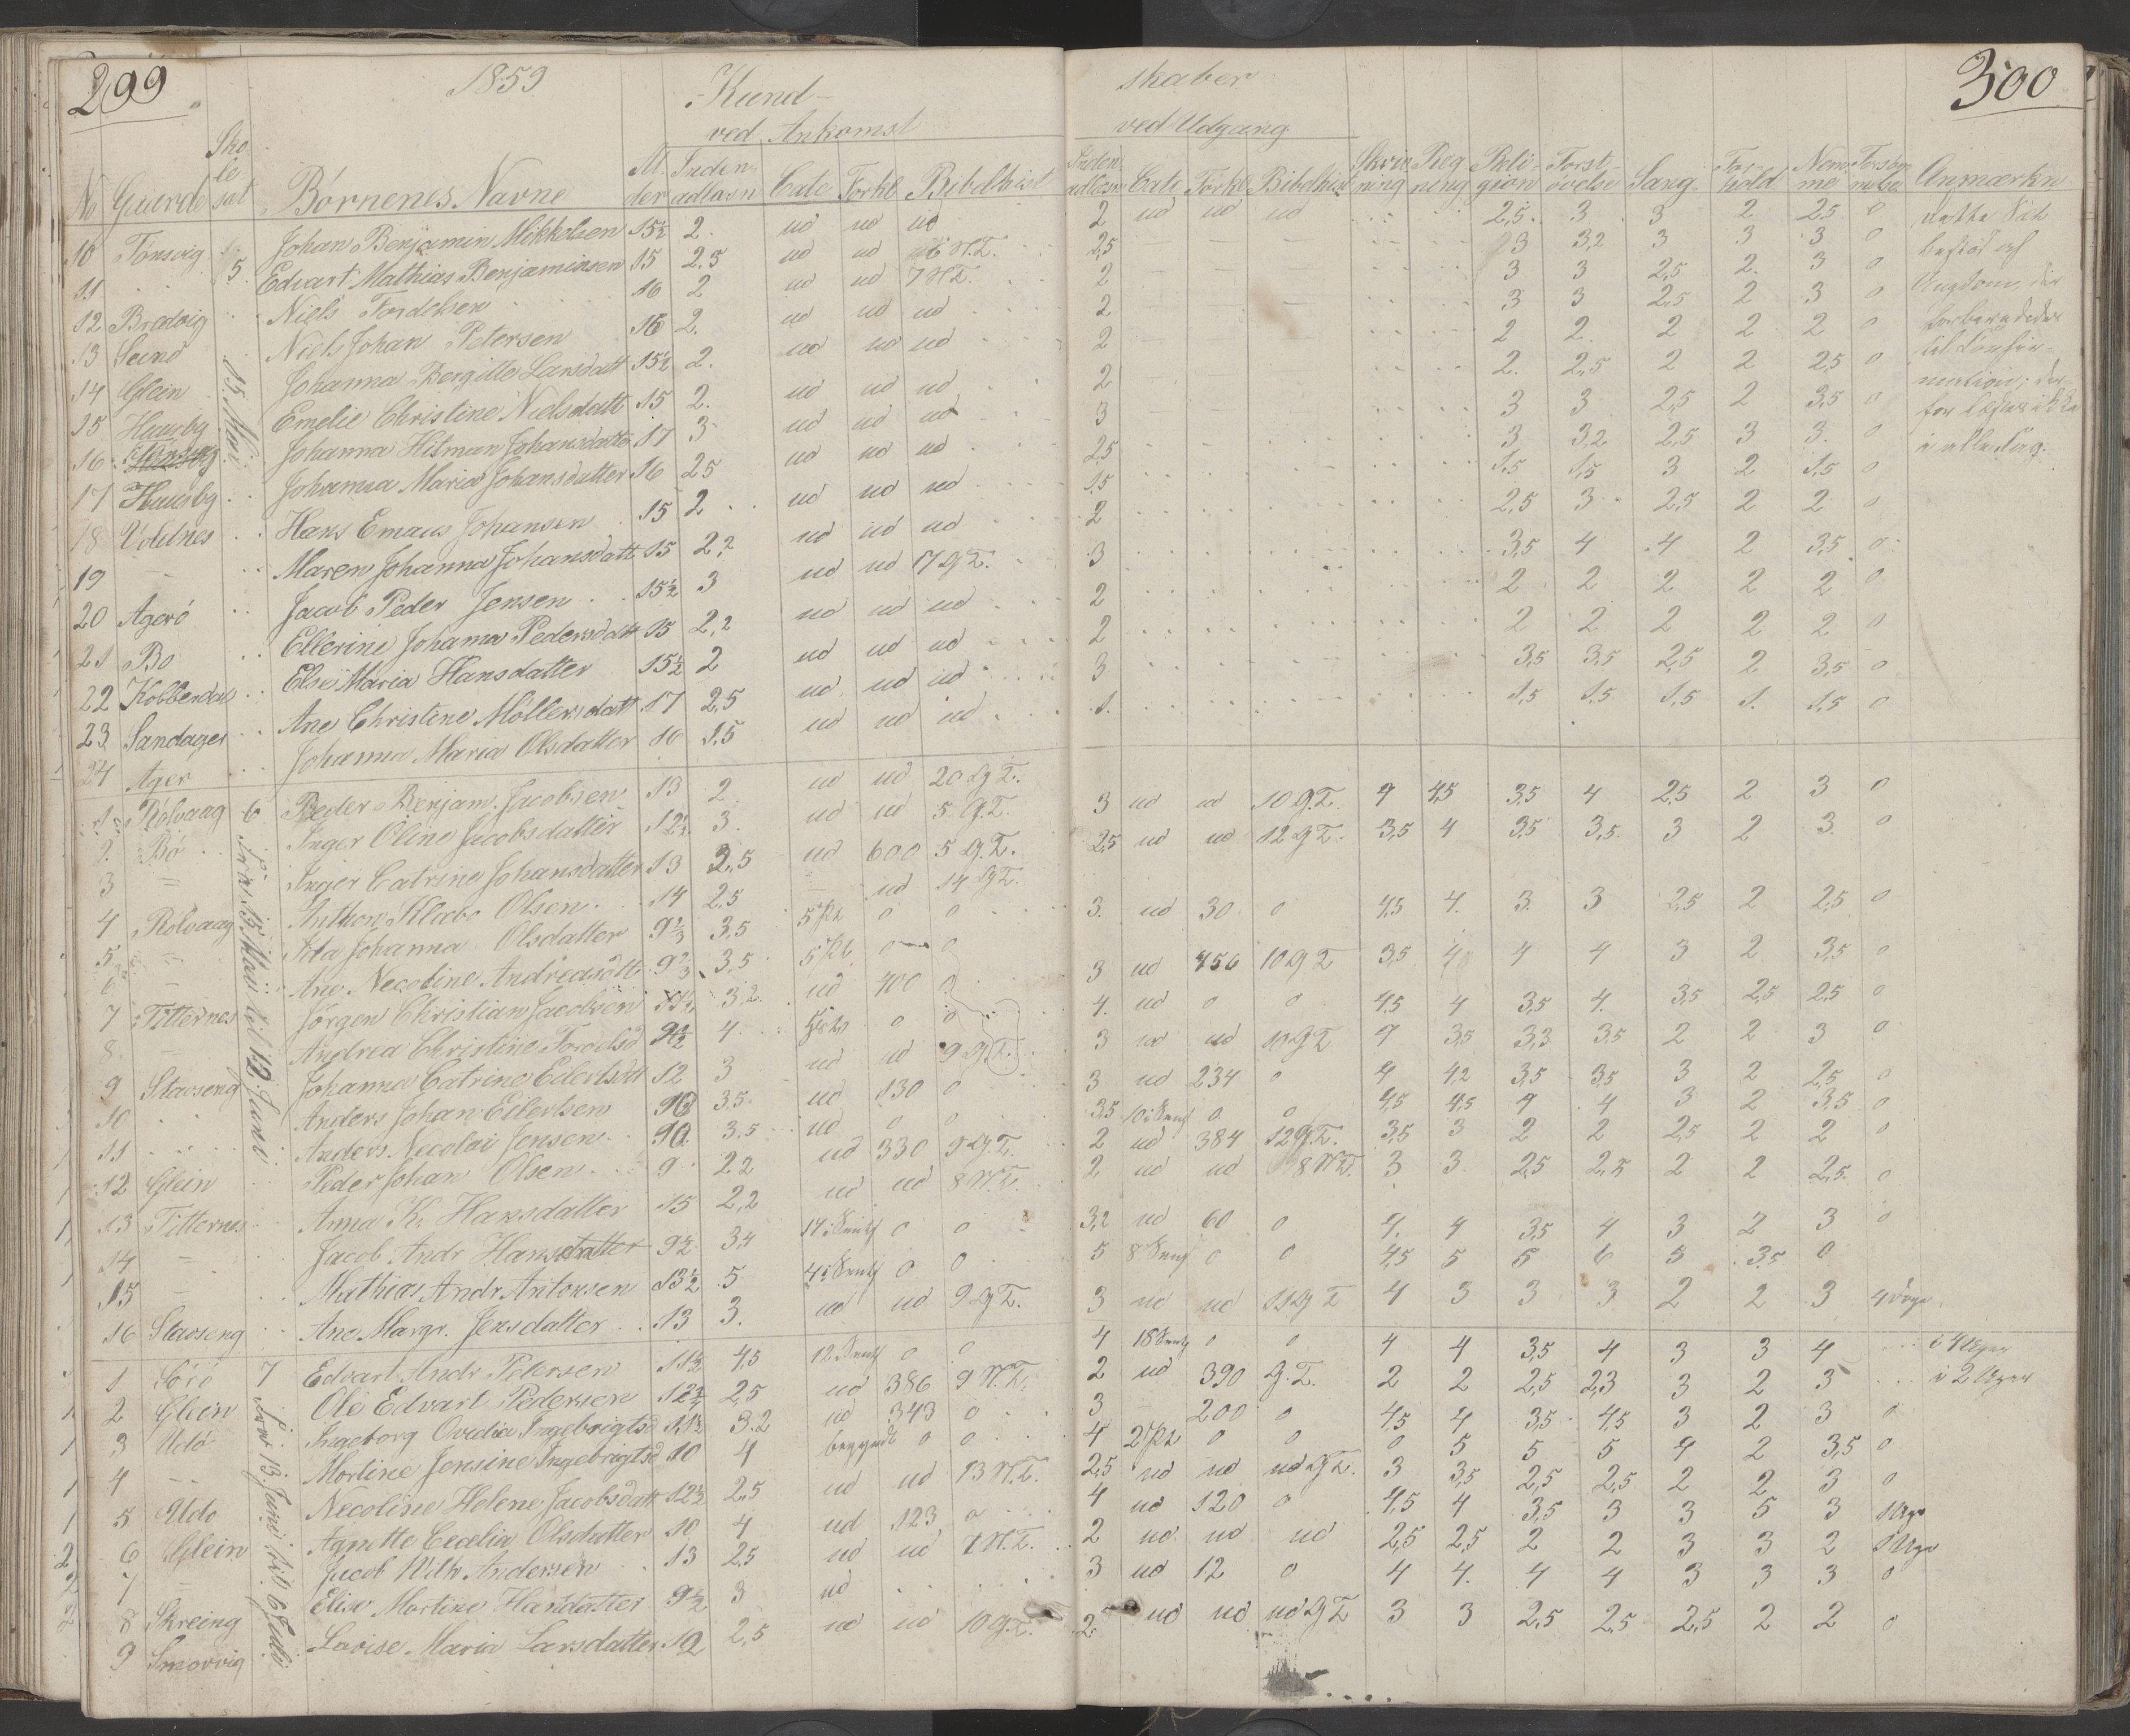 299
1859
Kund-
ved Ankomst
skaber
ved Udgang
300
No Gaarde Skolesæt Børnenes Navne Alder Indenadlæsn Cate Forkl Bibelhist Indenadlæsn Cate Forkl Bibelhist Skrivning Regning Religion Forstøvelse Sang Forhold Nemme Forsømmelse Anmærkn
10 Tonsvig 5. Johan Benjamin Mikkelsen 15½ 2. ud ud ud 2 ud ud ud 2,5 3 3 2 2,5 0
11 Edvart Mathias Benjaminsen 15 2,5 ud ud 6 N.T. 2,5 3 3,2 3 3 3 0
12 Bredvig Niels Tordelsen 16 2 ud ud 7 N.T. 2 3 3 2,5 2 3 0
13 Seind Niels Johan Petersen 16 2. ud ud ud 2 3 3 2,5 2 3 0
14 Glein Johanna Bergitte Larsdatt 15½ 2. ud ud ud 2 2 2 2 2 2 0
15 Huusbg Emelie Christine Nielsdatt 15 2. ud ud ud 2 2. 2,5 2 2 2,5 0
16 Johanna Hitman Johansdatter 17 3 ud ud ud 3 3 3 2,5 2 3,5 0
17 Huusbg Johanna Maria Johansdatter 16 25 ud ud ud 25 3 3,2 2,5 3 3. 0
18 Voldnes Hans Emaus Johansen 15 2 ud ud ud 1,5 1,5 1,5 3 2 1,5 0
19 Maren Johanna Johansdatt 15 2,2 ud ud ud 2 2,5 3 2,5 2 2 0
20 Agerö Jacob Peder Jensen 15½ 3 ud ud 17 G.T. 3 3,5 4 4 2 3,5 0
21 Bo Ellerine Johanna Pedersdatt 15 2,2 ud ud ud 2 2 2 2 2 2 0
22 Kobberdal Else Maria Hansdatter 15½ 2 ud ud ud 2 2 2 2 2 2 0
23 Sandager Ane Christine Möllersdatt 17 2,5 ud ud ud 3 3,5 3,5 2,5 2 3,5 0
24 Ager Johanna Maria Olsdatter 16 1,5 ud ud ud 1. 1,5 1,5 1,5 1. 1,5 0
til
bestod af
Ungdom, der
forberededes
til Confir-
mation; der-
for læstes ikke
i alle Fag.
15. Mai
1 Rölvaag 6 Peder Benjam. Jacobsen 13 2 ud ud 20 G.T. 3 ud ud 10 G.T. 4 4,5 3,5 4 2,5 2 3 0
2 Bö Inger Oline Jacobsdatter 12½ 3. ud ud 5 G.T. 2,5 ud ud 12 G.T. 3,5 4 3,5 3,5 3 2 3 0
3 = Inger Catrine Johansdatter 13 2,5 ud 600 5 G.T.
4 Rolvaag Anthon Klabo Olsen 14 2,5 ud 14 G.T. 3. ud 30 0 4,5 4. 3. 3 2,5 2 2,5 0
5 = Ida Johanna Olsdatter 9⅔ 3,5 5 Pt 0 0
6 = Ane Necoline Andreasdtt 9⅔ 3,5 5 Pt. 0 0 3 ud 456 10 G T 3,5 4 4 4 3 2 3,5 0
7 Titternes Jörgen Christian Jacobsen 3,2 ud 400 0 4. ud 0 0 4,5 4 3,5 4. 3,5 2,5 2,5 0
8 Andrea Christine Torodsd 9½ 4. 0 0 3 ud ud 10 G T 4 3,5 3,3 3,5 2 2 3 0
9 Stavseng Johanna Catrine Eilertsdt 12 3 ud ud 9 G.T. 3 ud 234 0 4 4,2 3,5 3,5 3 2 2,5 0
10 Anders Johan Eilertsen 3,5 ud 130 0 3,5 0 0 4,5 4,5 4 4 3 2 3,5 0
11 Anders Necolai Jensen 10 3,5 ud 0 0 2 ud 384 12 G.T. 3,5 3 2 2 2,5 2 2 0
12 Glein Peder Johan Olsen 9 22 ud 330 9 G.T. 2 ud ud 8 N.T. 3 3 2,5 2,5 2 2 2,5 0
13 Titternes Anna K. Hansdatter 15 2,2 ud ud 8 N.T.
14 = Jacob Andr Hansdatter 9½ 3,4 0 0 3,2 ud 60 0 4. 4 3,5 4 3 2 3 0
15 = Mathias Andr Antonsen 13½ 5 0 0 5 0 0 4,5 5 5 6 5 3,5 0
16 Stavseng Ane Margr. Jensdatter 13 3. ud ud 9 G.T. 3 ud ud 11 G T 4 3 3 3 2 2 3
fra 15. Mai til 12. Juni
1 Sörö 7 Edvart Andr Petersen 11½ 4,5 0 0 4 0 0 4 4 3,5 4 3 3 4 i 4 Uger
2 Glein Ole Edvart Pedersen 2,5 ud 386 9 N.T. 2 ud 390 G.T. 2 2 2,5 2,3 3 2 3 i 2 Uger
3 Udö Ingeborg Ovedia Ingebrigtsd 11½ 3.2 ud 343 0 3 200 0 4,5 4 3,5 4,5 3 2 3 0
4 Mortine Jensine Ingebrigtsd 10 4 begyndt 0 0 4 2 Pt 0 0 0 5 5 5 4 2 3,5 0
5 Udo Necoline Helene Jacobsdatt 12½ 2,5 ud ud 13 N.T. 2,5 ud ud ud G.T. 3 3,5 2,5 2,5 2 2 3 0
6 Glein Agnette Cecelia Olsdatter 10 4 ud 123 0 4 ud 120 0 4,5 4 3,5 3 3 5 3
7 = Jacob Wilh Andersen 13 2,5 ud ud 7 N.T. 2 ud ud ud 2,5 2,5 2 2 3 3 2
8 Skreing Elise Martine Hansdatter 9½ 3 ud 3 ud 12 0 4 4. 4 4 3 3 3 0
9 Smorvig Lovise Maria Larsdatter 12 2,5 ud ud 10 G.T. 2. ud ud ud G T 3 3 2,5 2,5 2,5 2 2 0
fra 13 Juni til 6 Juli